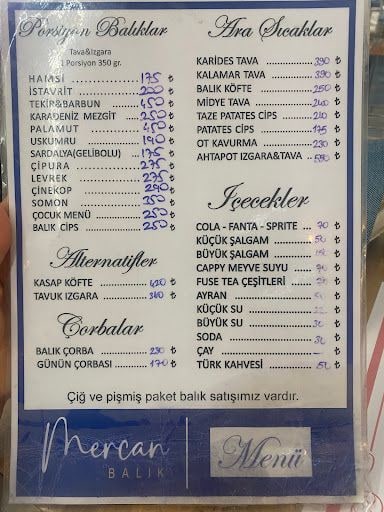 Porsiyon Balıklar
Tava&Izgara
1 Porsiyon 350 gr.
HAMSİ 175 ₺
İSTAVRİT 200 ₺
TEKİR&BARBUN 450 ₺
KARADENİZ MEZGİT 250 ₺
PALAMUT 450 ₺
USKUMRU 190 ₺
SARDALYA(GELİBOLU) 175 ₺
ÇİPURA 275 ₺
LEVREK 275 ₺
ÇİNEKOP 240 ₺
SOMON 350 ₺
ÇOCUK MENÜ 250 ₺
BALIK CİPS 250 ₺
Alternatifler
KASAP KÖFTE 420 ₺
TAVUK IZGARA 340 ₺
Çorbalar
BALIK ÇORBA 230 ₺
GÜNÜN ÇORBASI 170 ₺
Ara Sıcaklar
KARİDES TAVA 390 ₺
KALAMAR TAVA 390 ₺
BALIK KÖFTE 250 ₺
MİDYE TAVA 240 ₺
TAZE PATATES CİPS 210 ₺
PATATES CİPS 175 ₺
OT KAVURMA 230 ₺
AHTAPOT IZGARA&TAVA ₺
İçecekler
COLA - FANTA - SPRITE 70 ₺
KÜÇÜK ŞALGAM 50 ₺
BÜYÜK ŞALGAM ₺
CAPPY MEYVE SUYU ₺
FUSE TEA ÇEŞİTLERİ ₺
AYRAN ₺
KÜÇÜK SU ₺
BÜYÜK SU ₺
SODA ₺
ÇAY ₺
TÜRK KAHVESİ 50 ₺
Çiğ ve pişmiş paket balık satışımız vardır.
Mercan
BALIK
Menü